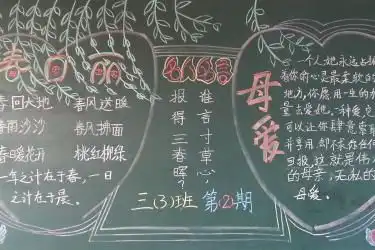 春日丽
春回大地 春风送暖
春雨沙沙 春风拂面
春暖花开 桃红柳绿
一年之计在于春,一日
之计在于晨。
名人名言
谁言寸草心,
报得三春晖?
三(3)班 第(2)期
母爱
一个人她永远占据
着你的心灵最柔软的
地方,你愿用一生的
去爱她,一种爱
可以让你肆意索取
并享用却不求任何
回报,这就是伟
的母亲,无私的
母爱。